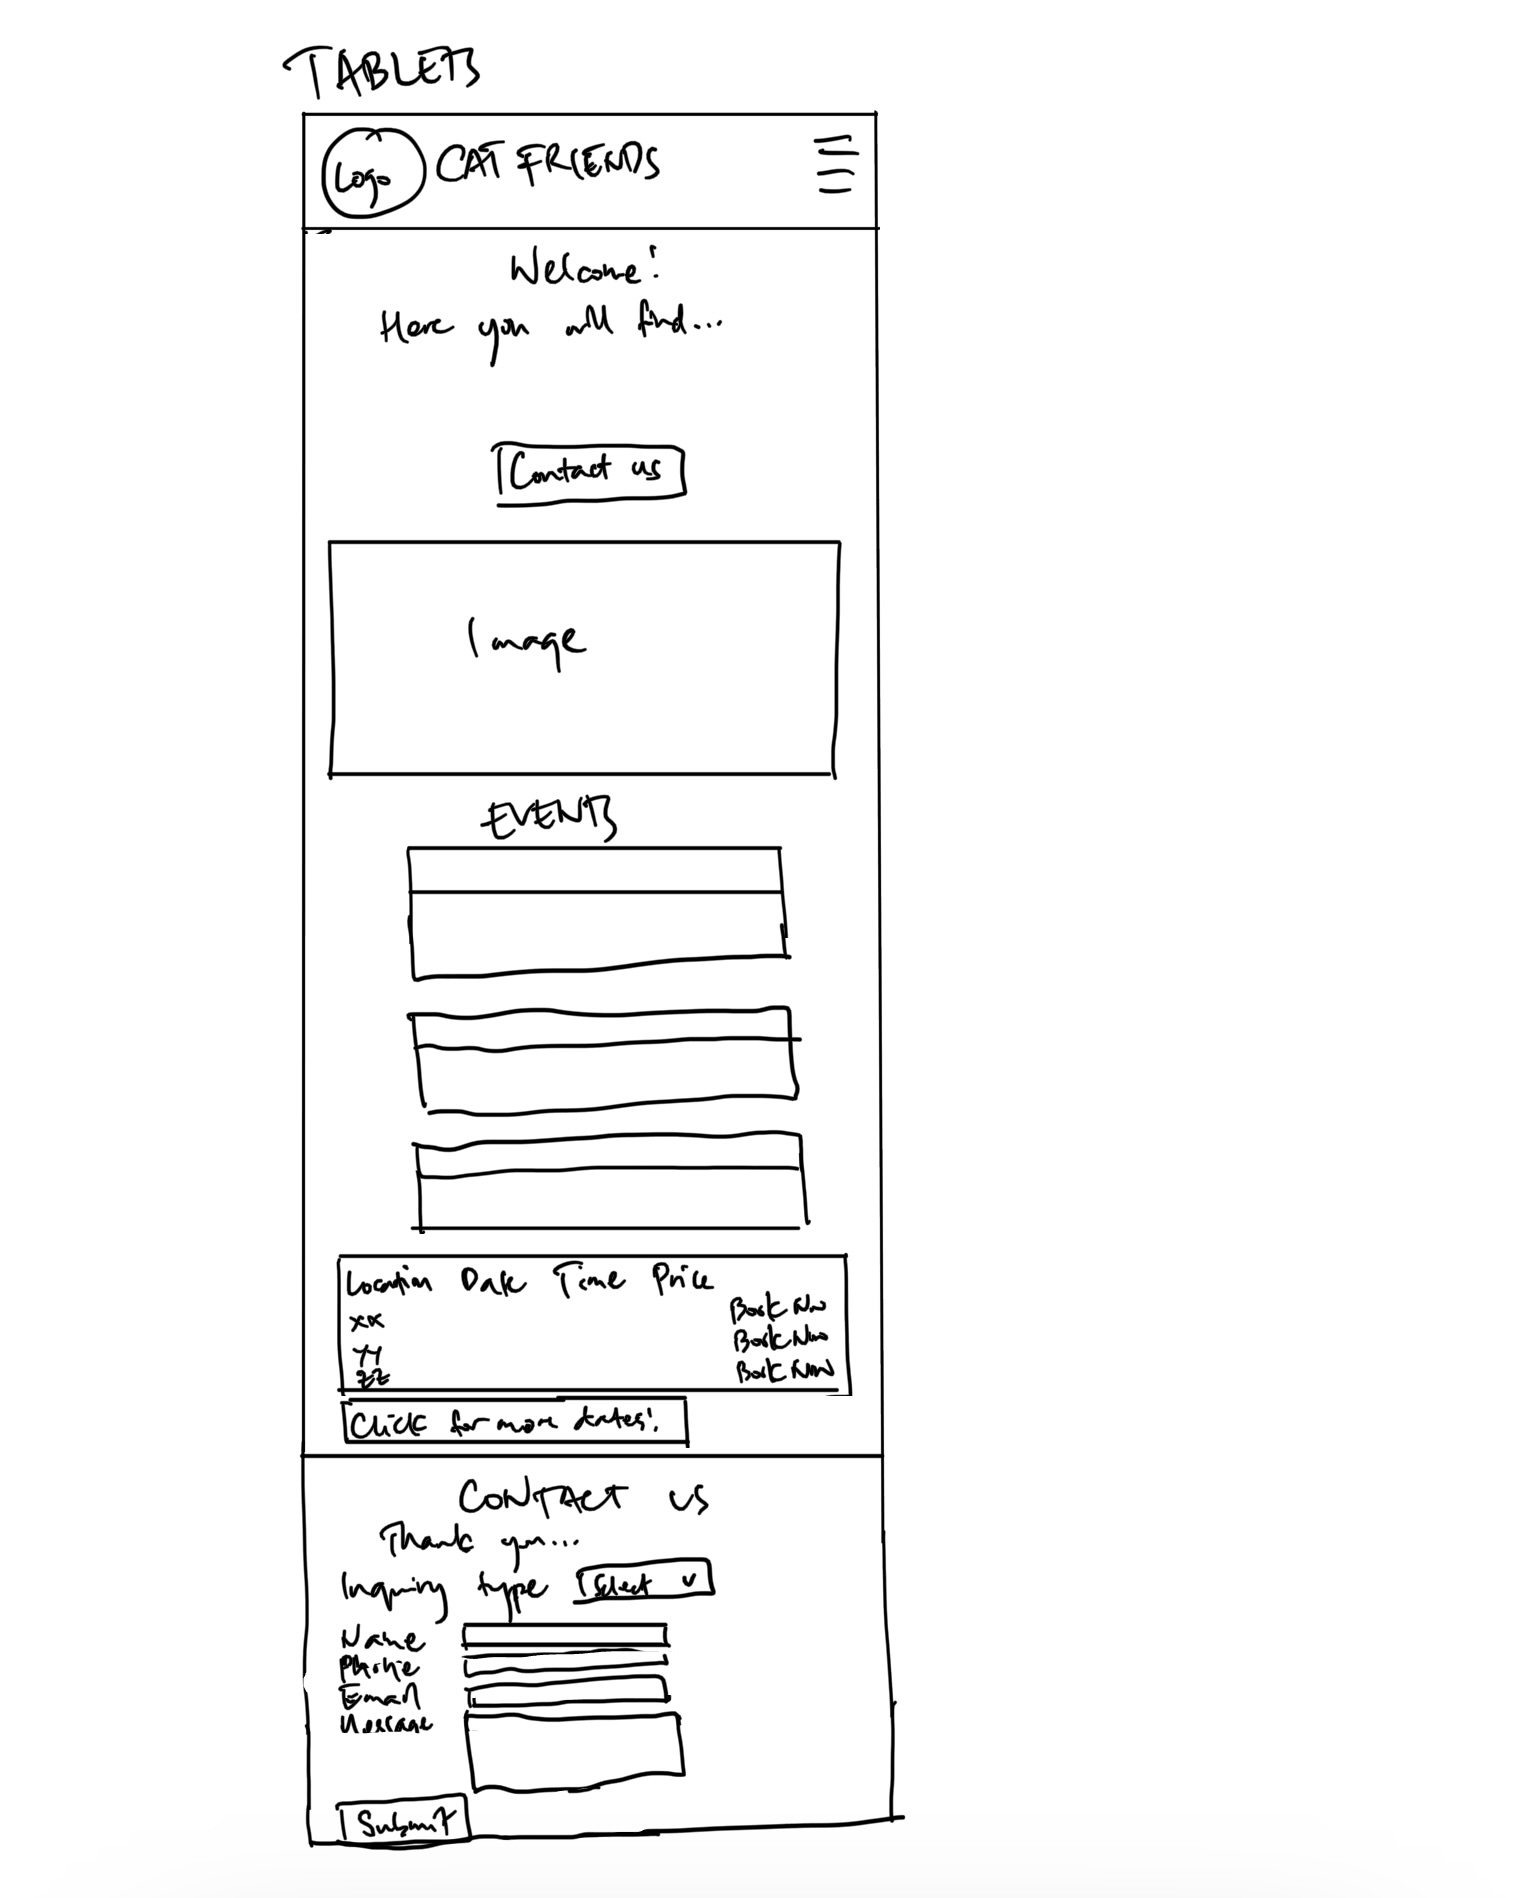 TABLETS
Logo CAT FRIENDS
Welcome!
Here you will find...
Contact us
Image
EVENTS
Location Date Time Price
xx Book Now
yy Book Now
zz Book Now
Click for more dates!
CONTACT US
Thank you...
Inquiry type Select v
Name
Phone
Email
Message
Submit